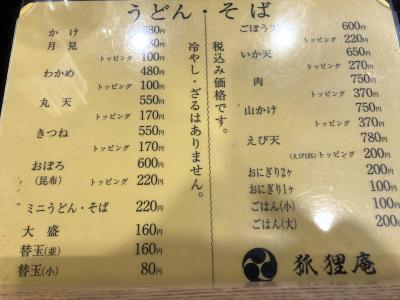 うどん・そば
かけ 380円
月見
トッピング 100円
わかめ 480円
トッピング 100円
丸天 550円
トッピング 170円
きつね 550円
トッピング 170円
おぼろ 600円
(昆布) トッピング 220円
ミニうどん・そば 220円
大盛 160円
替玉(並) 160円
替玉(小) 80円
税込み価格です。
冷やし・ざるはありません。
ごぼう天 600円
トッピング 220円
いか天 650円
トッピング 270円
肉 750円
トッピング 370円
山かけ 750円
トッピング 370円
えび天 780円
(えび1匹)トッピング 200円
おにぎり2ヶ 200円
おにぎり1ヶ 100円
ごはん(小) 100円
ごはん(大) 200円
狐狸庵